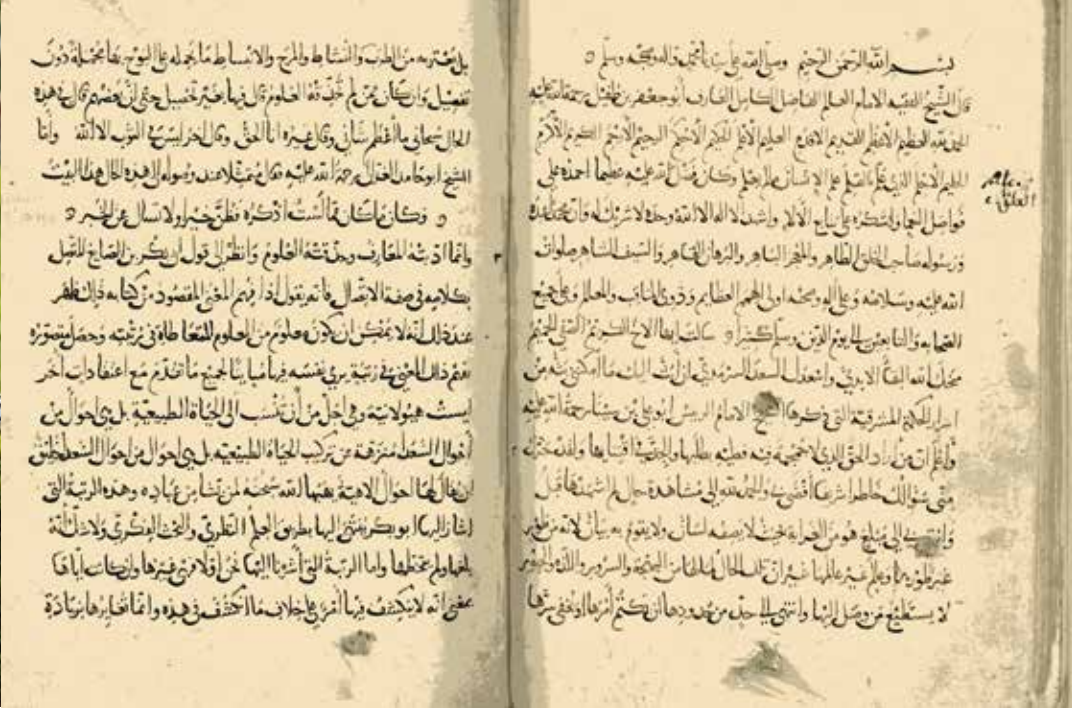 بسم الله الرحمن الرحيم وصلى الله على سيدنا محمد واله وصحبه وسلم
قال الشيخ الفقيه الامام العالم الفاضل الكامل العارف أبو جعفر بن طفيل رحمة الله عليه
الحمد لله العظيم الاعظم القديم الاقدم العليم الاعلم الحكيم الاحكم الرحيم الارحم الكريم الاكرم
الحليم الاحلم الذي علم بالقلم علم الانسان ما لم يعلم وكان فضل الله عليه عظيما احمده على
فواضل النعما واشكره على تتابع الآلاء واشهد ان لا اله الا الله وحده لا شريك له وان محمدا عبده
ورسوله صاحب الخلق الطاهر والمعجز الباهر والبرهان القاهر والسيف الشاهر صلوات
الله عليه وسلامه وعلى اله وصحبه اولى الهمم العظايم وذوي المناقب والمعالم وعلى جميع
الصحابه والتابعين الى يوم الدين وسلم كثيرا سالت ايها الاخ الكريم الصفي الحميم
منحك الله البقاء الابدي واسعدك السعد السرمدي ان ابث اليك ما امكنني بثه من
اسرار الحكمة المشرقية التي ذكرها الشيخ الامام الرييس ابو علي بن سينا رحمة الله عليه
واعلم ان من اراد الحق الذي لا جمجمة فيه فعليه بطلبها والجد في اقتنايها ولقد حرك
مني سؤالك خاطرا شريفا افضى بي والحمد لله الى مشاهدة حال لم اشهدها قبل
وانتهى بي الى مبلغ هو من الغرابة بحيث لا يصفه لسان ولا يقوم به بيان لانه من طور
غير طورهما وعالم غير عالمهما غير ان تلك الحال لما لها من البهجة والسرور واللذة والحبور
لا يستطيع من وصل اليها وانتهى الى حد من حدودها ان يكتم أمرها او يخفي سرها
بل يعتريه من الطرب والنشاط والمرح والانبساط ما يحمله على البوح بها مجملة دون
تفصيل وان كان ممن لم تحذقه العلوم قال فيها بغير تحصيل حتى ان بعضهم قال في هذه
الحال سبحاني ما أعظم شأني وقال غيره انا الحق وقال اخر ليس في الثوب الا الله وأما
الشيخ ابو حامد الغزالي رحمة الله عليه فقال متمثلا عند وصوله الى هذه الحال هذا البيت
فكان ما كان مما لست اذكره فظن خيرا ولا تسال عن الخبر
وانما ادبته المعارف وحذقته العلوم وانظر الى قول ابي بكر بن الصايغ المتصل
بكلامه في صفة الاتصال فانه يقول اذا فهم المعنى المقصود من كتابه ذلك ظهر
عند ذلك انه لا يمكن ان يكون معلوم من العلوم المتعاطاة في رتبته وحصل متصوره
بفهم ذلك المعنى في رتبة يرى نفسه فيها مباينا لجميع ما تقدم مع اعتقادات أخر
ليست هيولانية وهي اجل من أن تنسب الى الحياة الطبيعية بل هي احوال من
أحوال السعداء منزهة عن تركيب الحياة الطبيعيه بل هي احوال من احوال السعداء خليقة
ان يقال لها احوال لاهية يهبها الله سبحنه لمن يشا من عباده وهذه الرتبة التي
اشار اليها ابو بكر ينتهى اليها بطريق العلم النظري والبحث الفكري ولا شك أنه
بلغها ولم يتخطها واما الرتبة التي أشرنا اليها نحن اولا فهي غيرها وان كانت اياها
بمعنى انه لا ينكشف فيها أمر على خلاف ما انكشف في هذه وانما تغايرها بزيادة